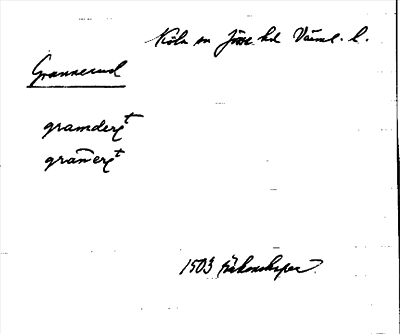 Köla sn Jösse hd Värml. l.
Grannerud
gramderet
grañeret
1503 Räkenskaper